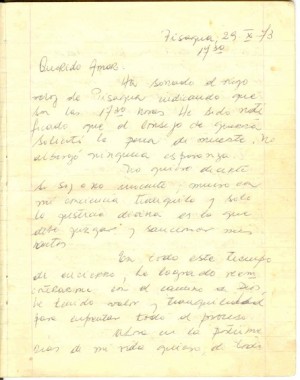 Pisagua, 29 X 73
17 30
Querido Amor:
Ha sonado el
reloj de Pisagua indicando que
son las 17 30 horas He sido noti
ficado que el consejo de guerra
solicitó la pena de muerte. No
albergo ninguna esperanza.
No quiero decirte
si soy o no inocente; muero con
mi conciencia tranquila y solo
la justicia divina es la que
debe juzgar y sancionar mis
actos.
En todo este tiempo
de encierro, he logrado
con el camino de Dios,
he tenido valor y tranquilidad
para enfrentar todo el proceso
Ahora en la
de mi vida quiero de todo